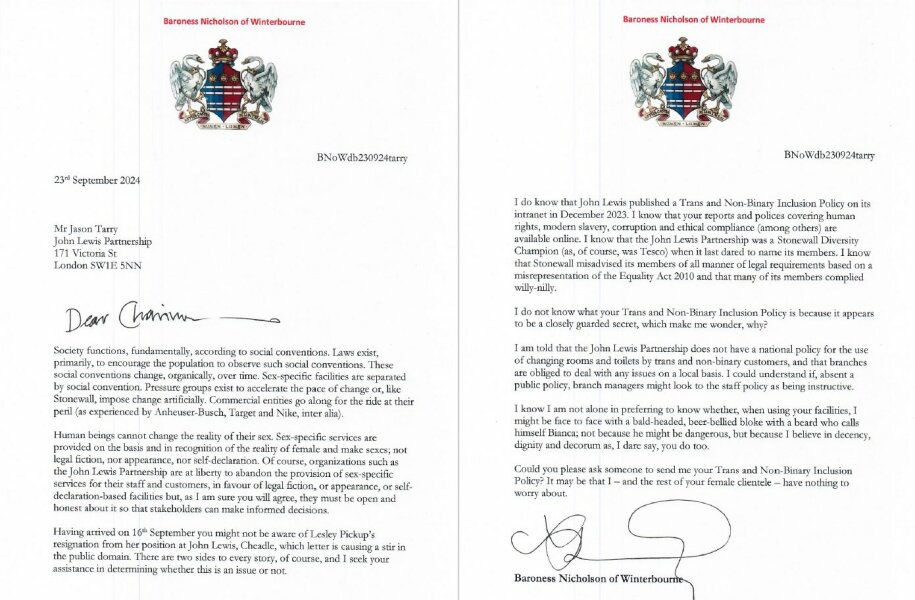 Baroness Nicholson of Winterbourne
BNoWdb230924tarry
23rd September 2024
Mr Jason Tarry
John Lewis Partnership
171 Victoria St
London SW1E 5NN
Dear Chairman
Society functions, fundamentally, according to social conventions. Laws exist,
primarily, to encourage the population to observe such social conventions. These
social conventions change, organically, over time. Sex-specific facilities are separated
by social convention. Pressure groups exist to accelerate the pace of change or, like
Stonewall, impose change artificially. Commercial entities go along for the ride at their
peril (as experienced by Anheuser-Busch, Target and Nike, inter alia).
Human beings cannot change the reality of their sex. Sex-specific services are
provided on the basis and in recognition of the reality of female and make sexes; not
legal fiction, nor appearance, nor self-declaration. Of course, organizations such as
the John Lewis Partnership are at liberty to abandon the provision of sex-specific
services for their staff and customers, in favour of legal fiction, or appearance, or self-
declaration-based facilities but, as I am sure you will agree, they must be open and
honest about it so that stakeholders can make informed decisions.
Having arrived on 16th September you might not be aware of Lesley Pickup's
resignation from her position at John Lewis, Cheadle, which letter is causing a stir in
the public domain. There are two sides to every story, of course, and I seek your
assistance in determining whether this is an issue or not.
Baroness Nicholson of Winterbourne
BNoWdb230924tarry
I do know that John Lewis published a Trans and Non-Binary Inclusion Policy on its
intranet in December 2023. I know that your reports and polices covering human
rights, modern slavery, corruption and ethical compliance (among others) are
available online. I know that the John Lewis Partnership was a Stonewall Diversity
Champion (as, of course, was Tesco) when it last dared to name its members. I know
that Stonewall misadvised its members of all manner of legal requirements based on a
misrepresentation of the Equality Act 2010 and that many of its members complied
willy-nilly.
I do not know what your Trans and Non-Binary Inclusion Policy is because it appears
to be a closely guarded secret, which make me wonder, why?
I am told that the John Lewis Partnership does not have a national policy for the use
of changing rooms and toilets by trans and non-binary customers, and that branches
are obliged to deal with any issues on a local basis. I could understand if, absent a
public policy, branch managers might look to the staff policy as being instructive.
I know I am not alone in preferring to know whether, when using your facilities, I
might be face to face with a bald-headed, beer-bellied bloke with a beard who calls
himself Bianca; not because he might be dangerous, but because I believe in decency,
dignity and decorum as, I dare say, you do too.
Could you please ask someone to send me your Trans and Non-Binary Inclusion
Policy? It may be that I – and the rest of your female clientele – have nothing to
worry about.
Baroness Nicholson of Winterbourne